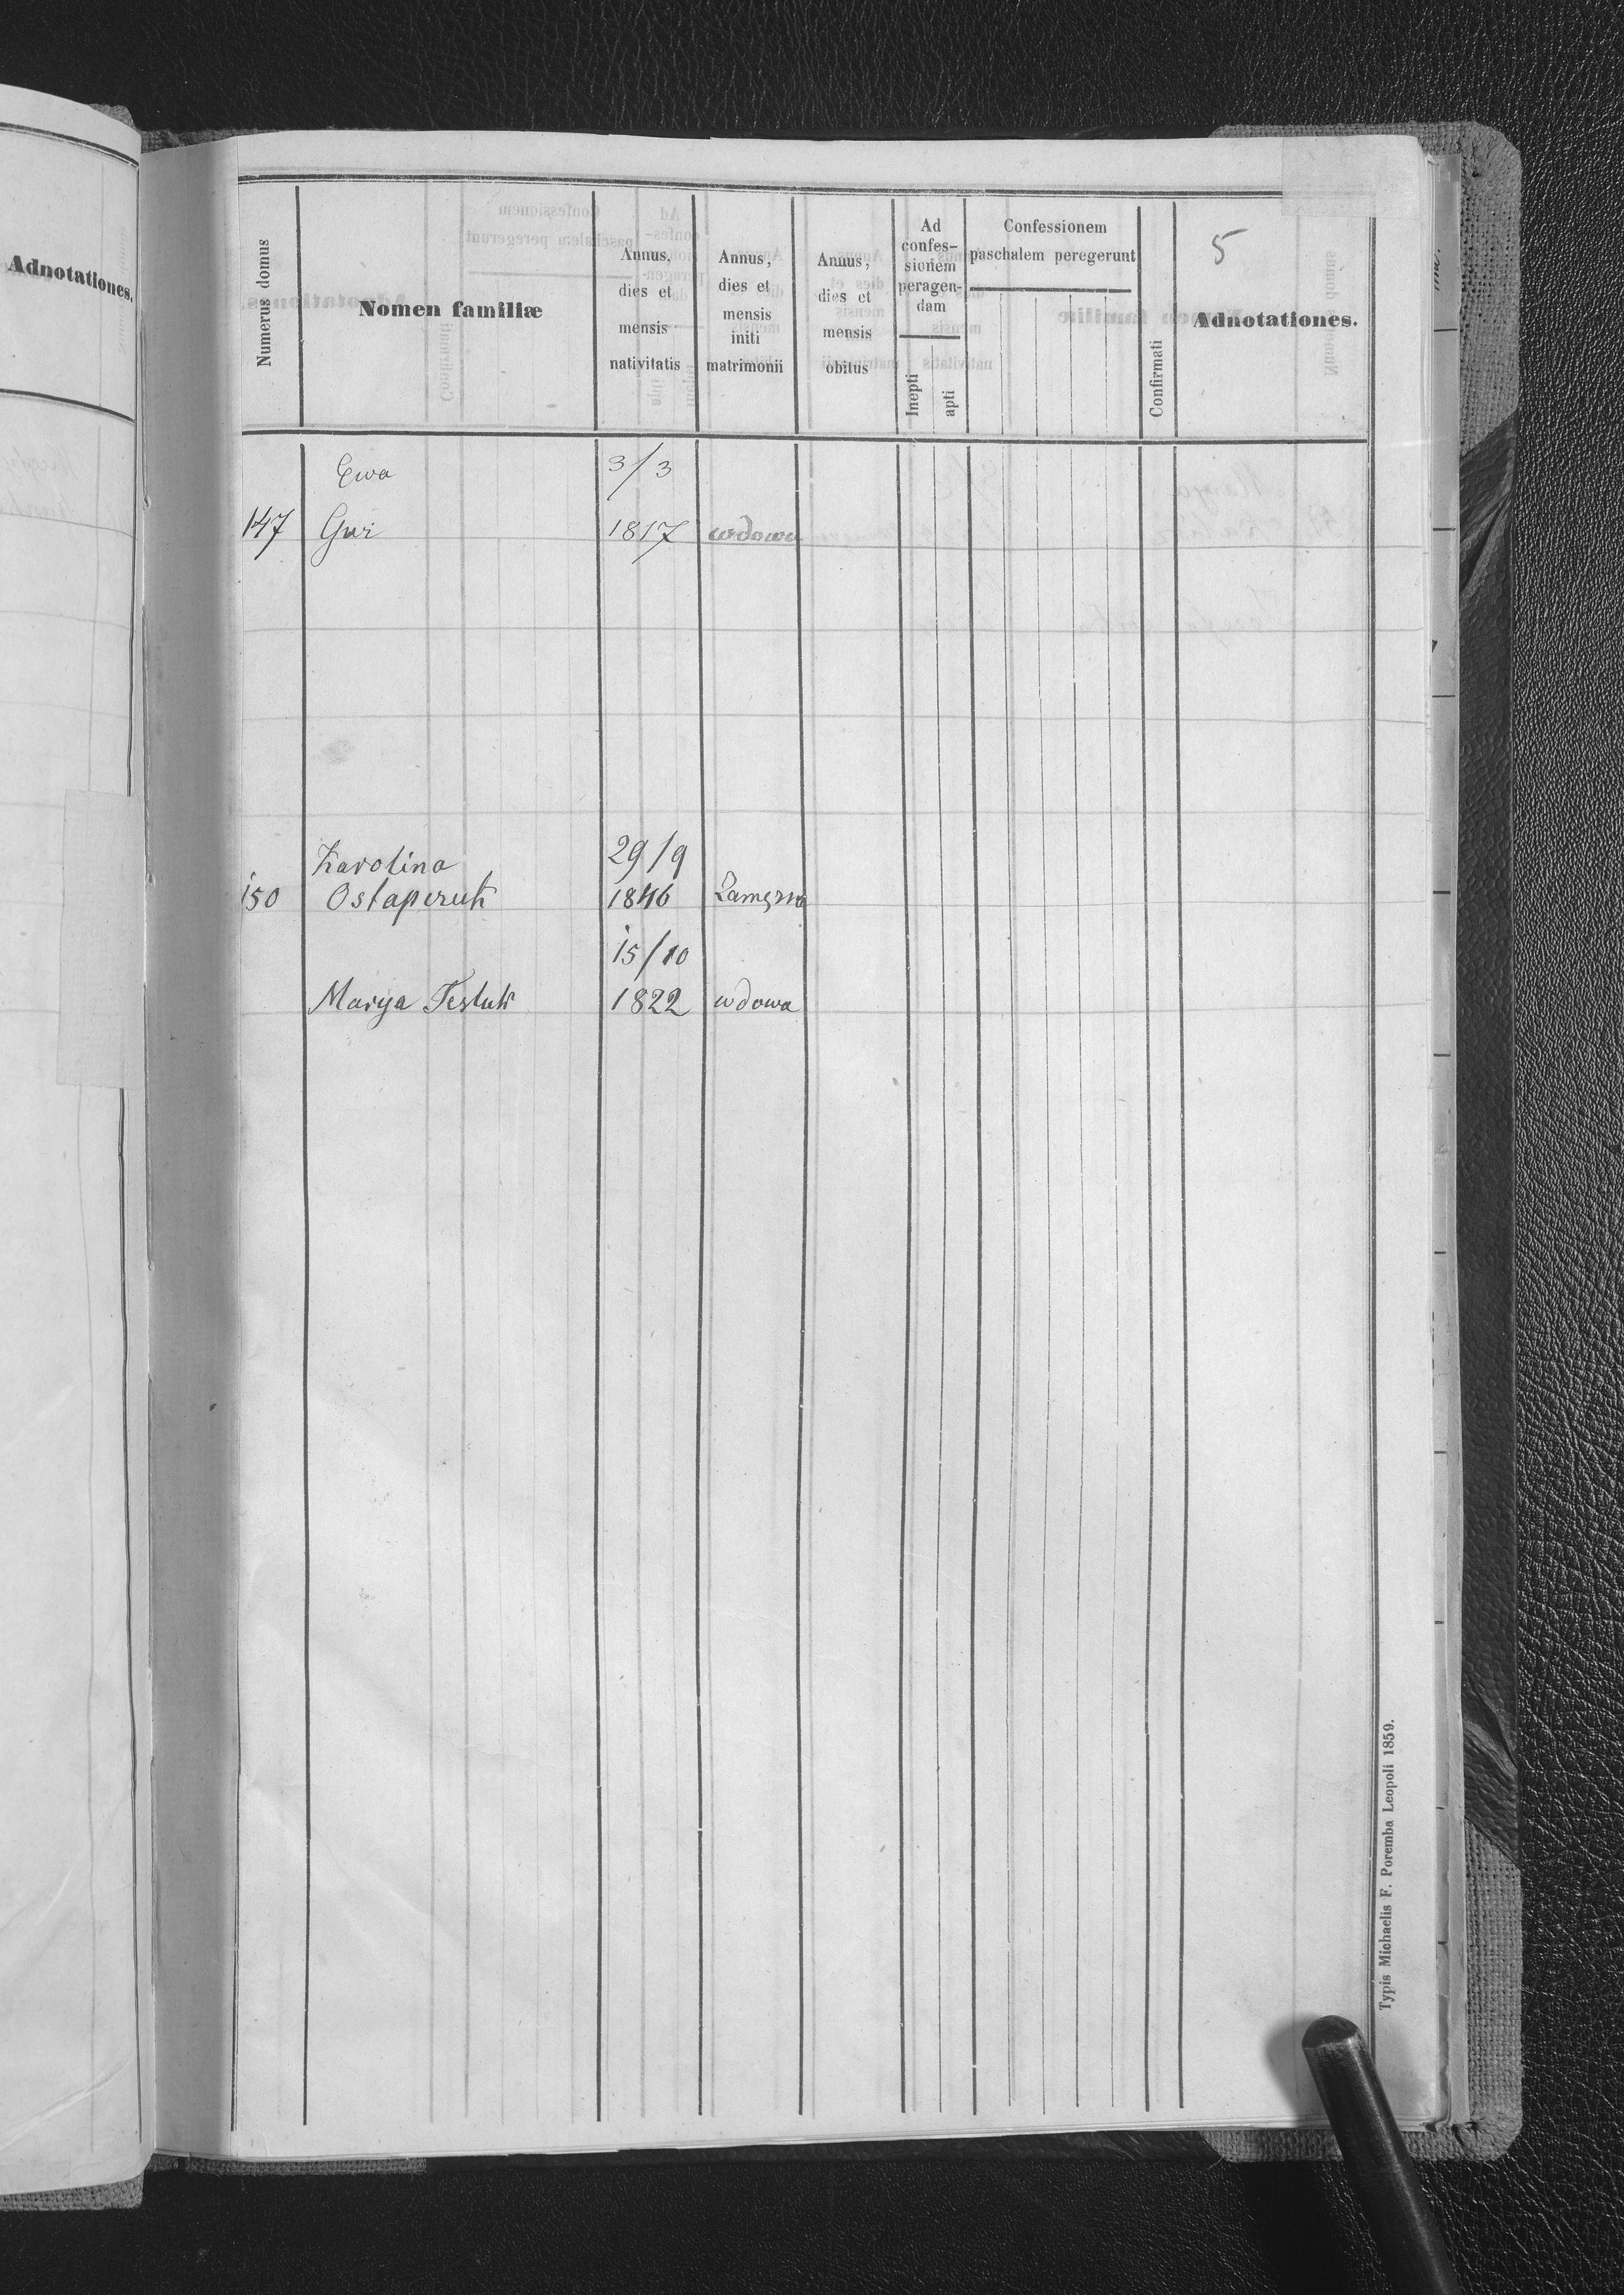 Adnotationes.
5
Numerus domus
Nomen familiæ
Annus,
dies et
mensis
nativitatis
Annus,
dies et
mensis
initi
matrimonii
Annus,
dies et
mensis
obitus
Ad
confes-
sionem
peragen-
dam
Inepti
apti
Confessionem
paschalem peregerunt
Confirmati
Adnotationes.
Ewa 3/3
147 1817 wdowa
Karolina 29/9
150 1846
15/10
Marya 1822 wdowa
Typis Michaelis F. Poremba Leopoli 1859.